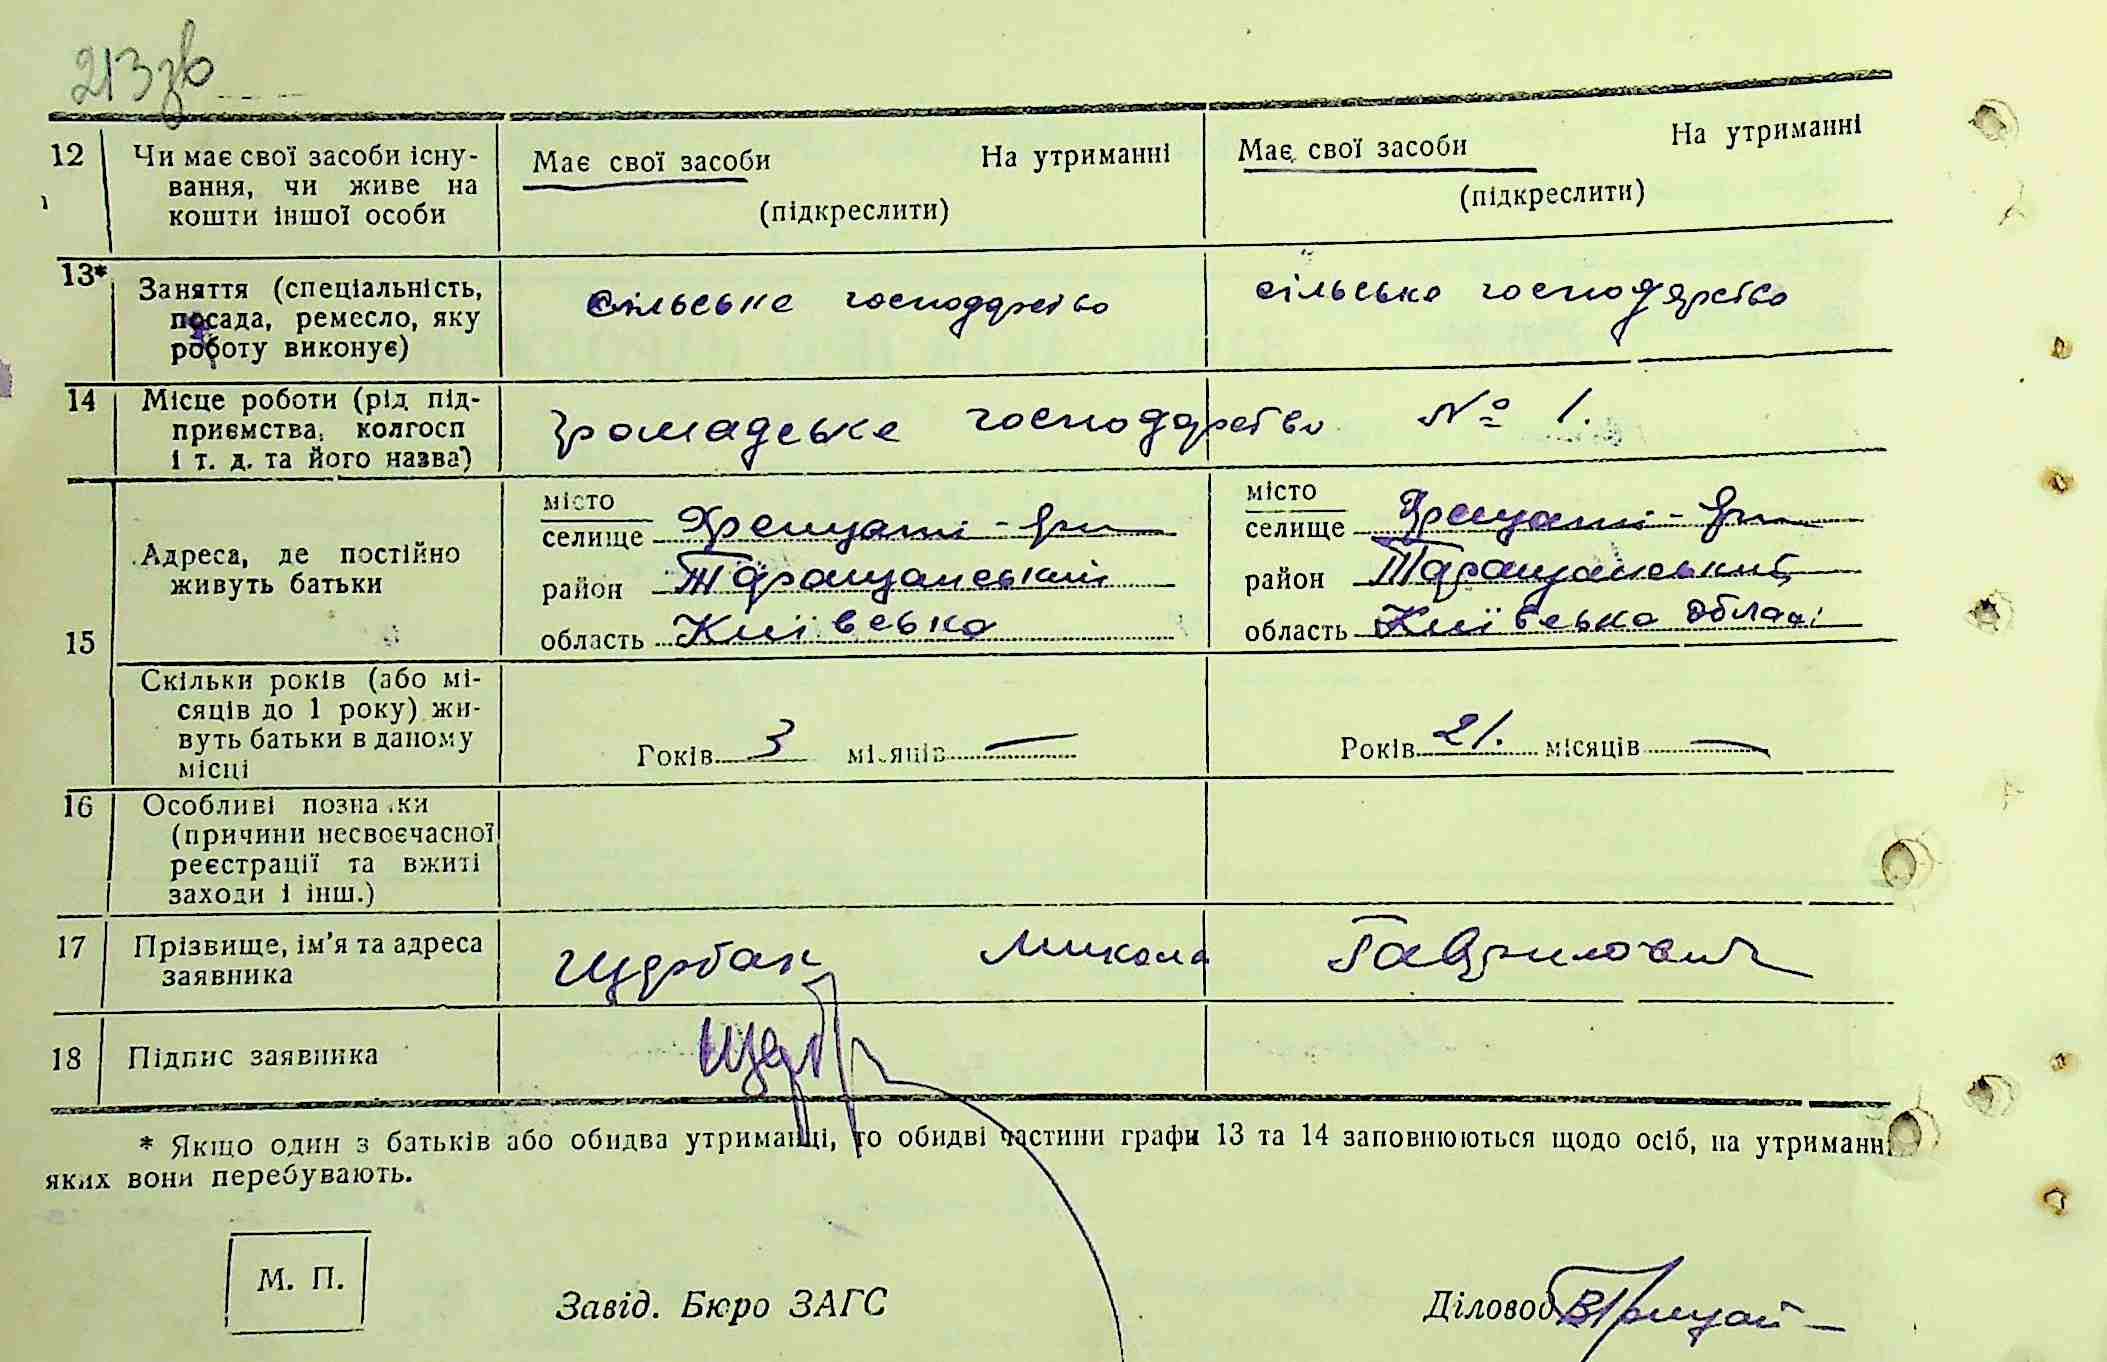 213зв
12 Чи має свої засоби існу-
вання, чи живе на
кошти іншої особи
Має свої засоби На утриманні
(підкреслити)
Має свої засоби На утриманні
(підкреслити)
13* Заняття (спеціальність,
посада, ремесло, яку
роботу виконує)
сільське господарство
сільське господарство
14 Місце роботи (рід під-
приємства, колгосп
і т. д. та його назва)
Громадське господарство № 1.
15 Адреса, де постійно
живуть батьки
місто
селище Хрещаті-Яри
район Таращанський
область Київська
місто
селище Хрещаті-Яри
район Таращанський
область Київська області
Скільки років (або мі-
сяців до 1 року) жи-
вуть батьки в даному
місці
Років 3 місяців —
Років 21. місяців —
16 Особливі познаки
(причини несвоєчасної
реєстрації та вжиті
заходи і інш.)
17 Прізвище, ім'я та адреса
заявника
Щербак Микола Гаврилович
18 Підпис заявника
Щерб
* Якщо один з батьків або обидва утриманці, то обидві частини графи 13 та 14 заповнюються щодо осіб, на утриманні
яких вони перебувають.
М. П.
Завід. Бюро ЗАГС
Діловод